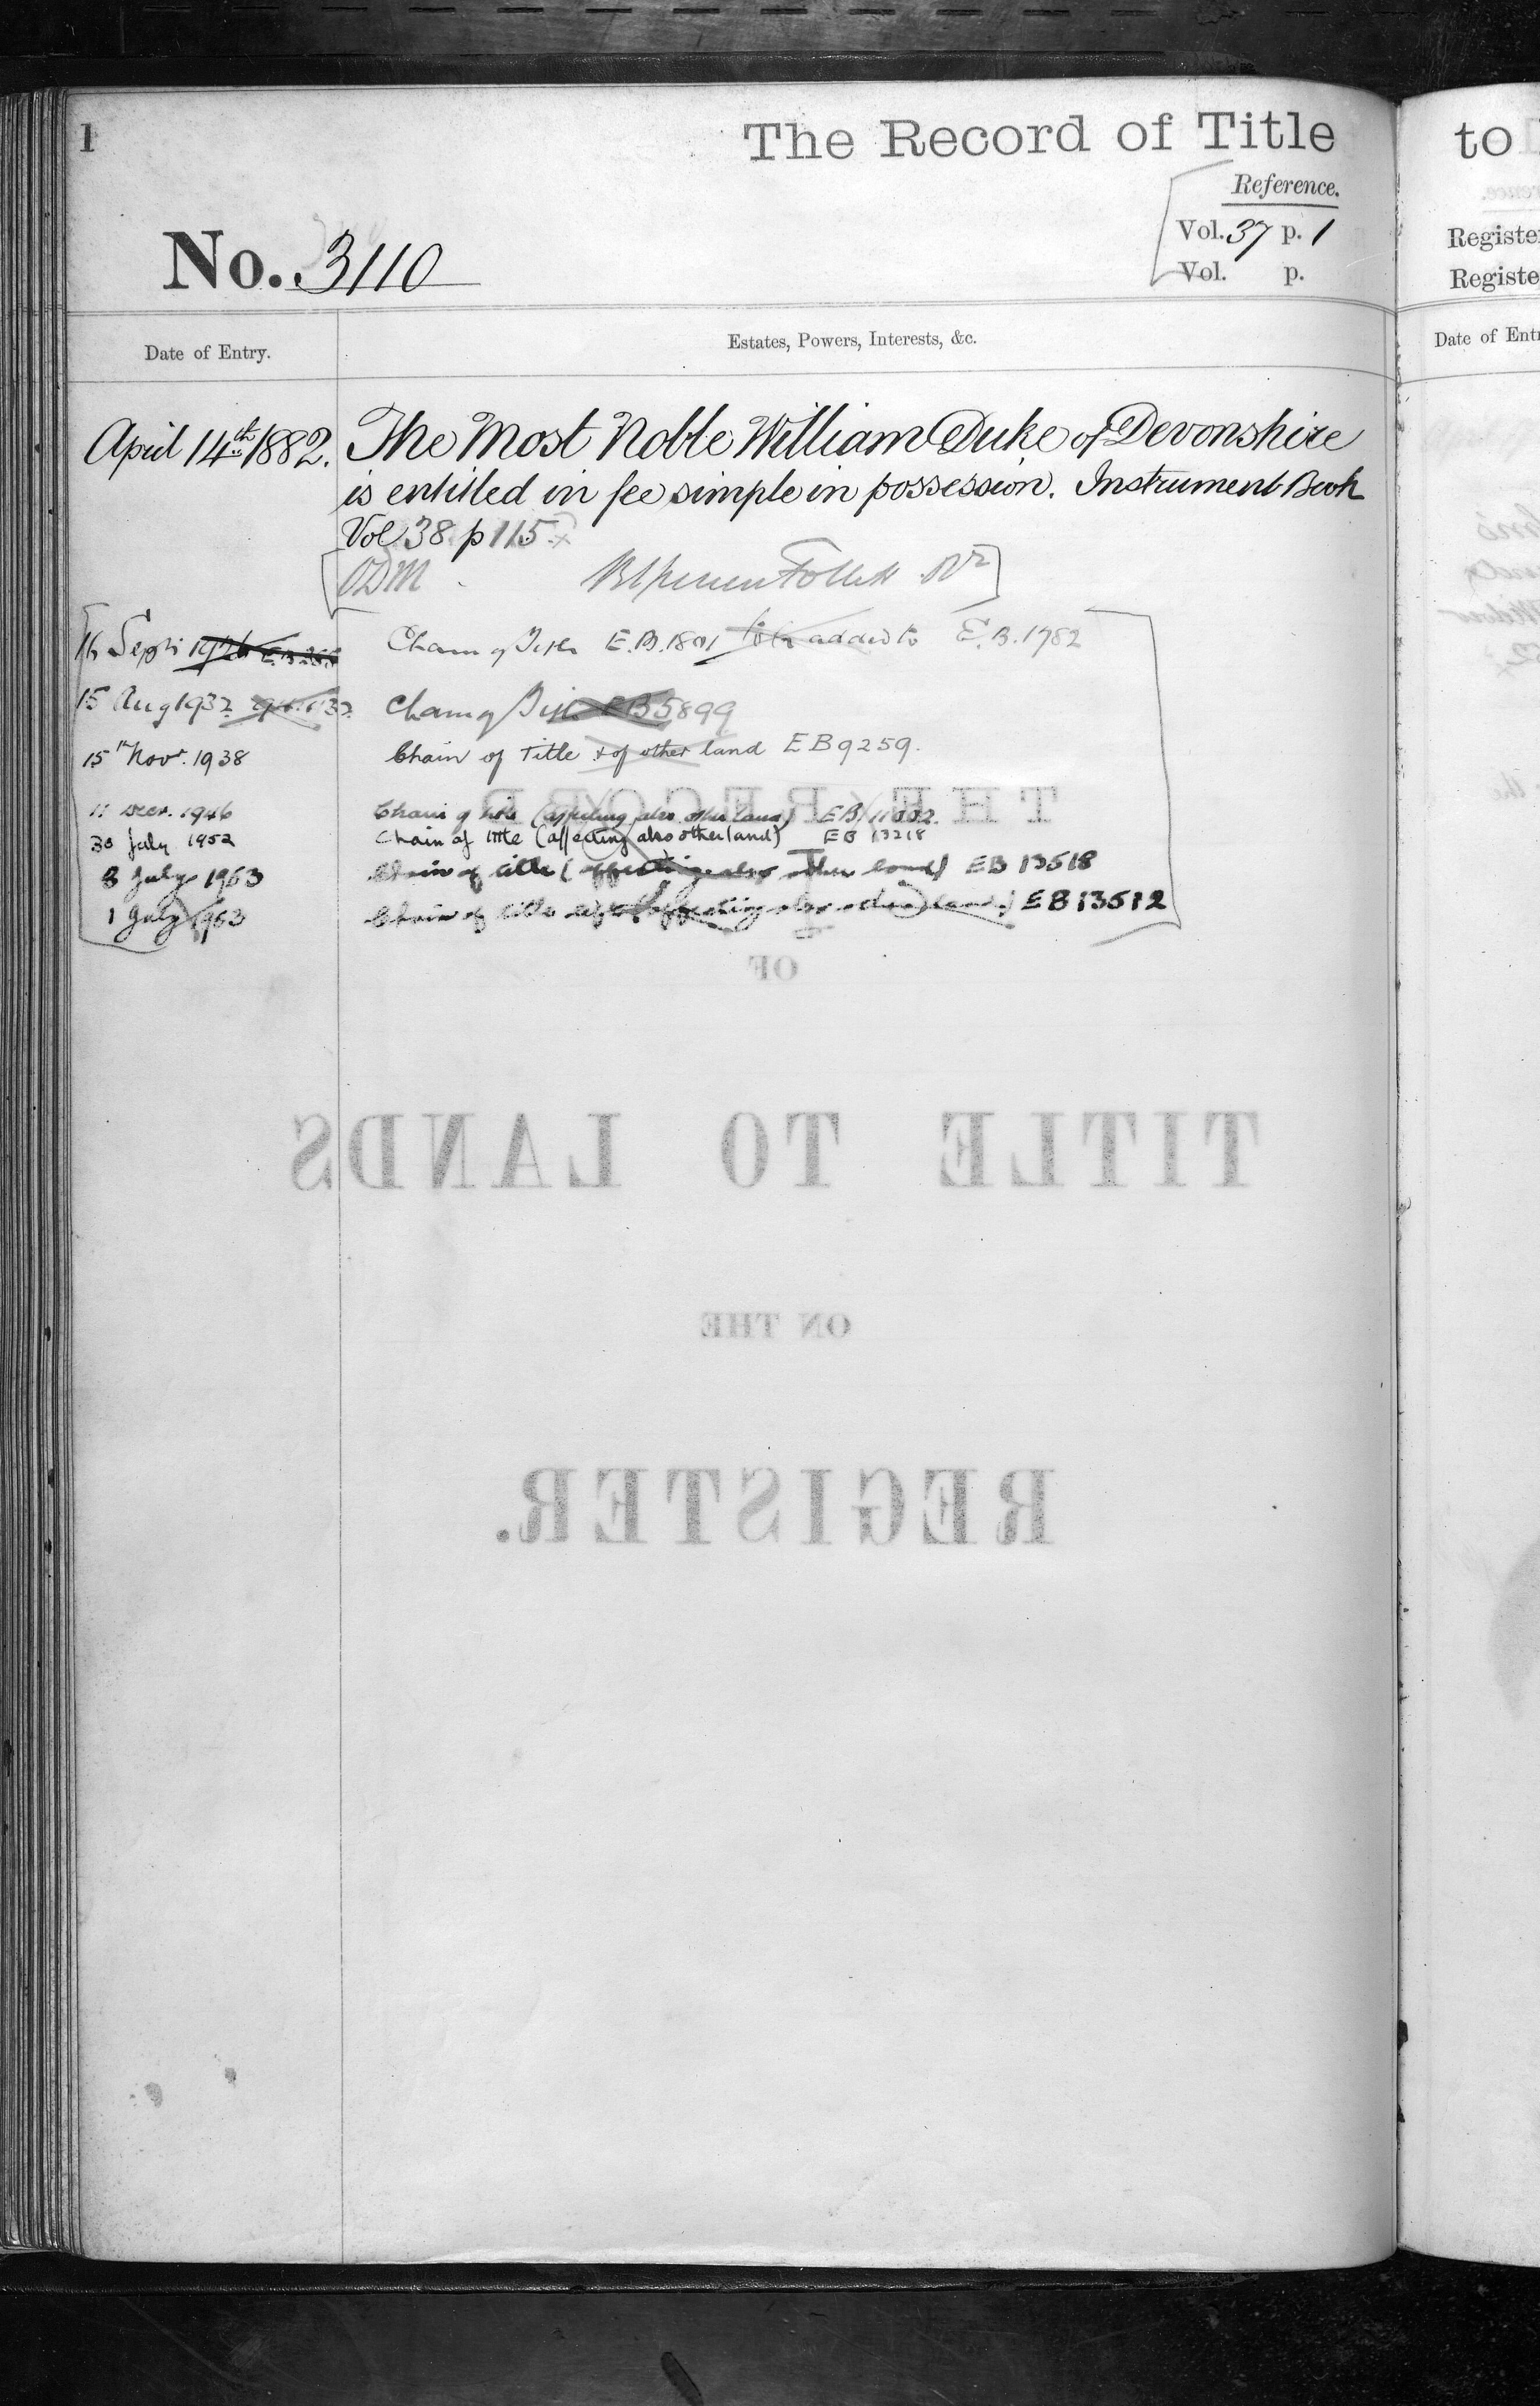 1
The Record of Title
to
Reference.
Vol. 37 p. 1
Vol. p.
Registe
Registe
No. 3110
Date of Entry.
Estates, Powers, Interests, &c.
Date of Ent
April 14th 1882.
The Most Noble William Duke of Devonshire
is entitled in fee simple in possession. Instrument Book
Vol 38 p 115
16 Sept 1926
Chain of Title E.B. 1801 added to E.B. 1782
15 Aug 1932
Chain of Title EB 5899
15th Novr. 1938
Chain of Title & of other land EB 9259.
11 Decr. 1946
Chain of title (affecting also other land) EB
30 July 1952
Chain of title (affecting also other land) EB 13218
8 July 1963
Chain of title (affecting also other land) EB 13518
1 July 1963
Chain of title (affecting also other land) EB 13512
THE RECORD
OF
TITLE TO LANDS
ON THE
REGISTER.